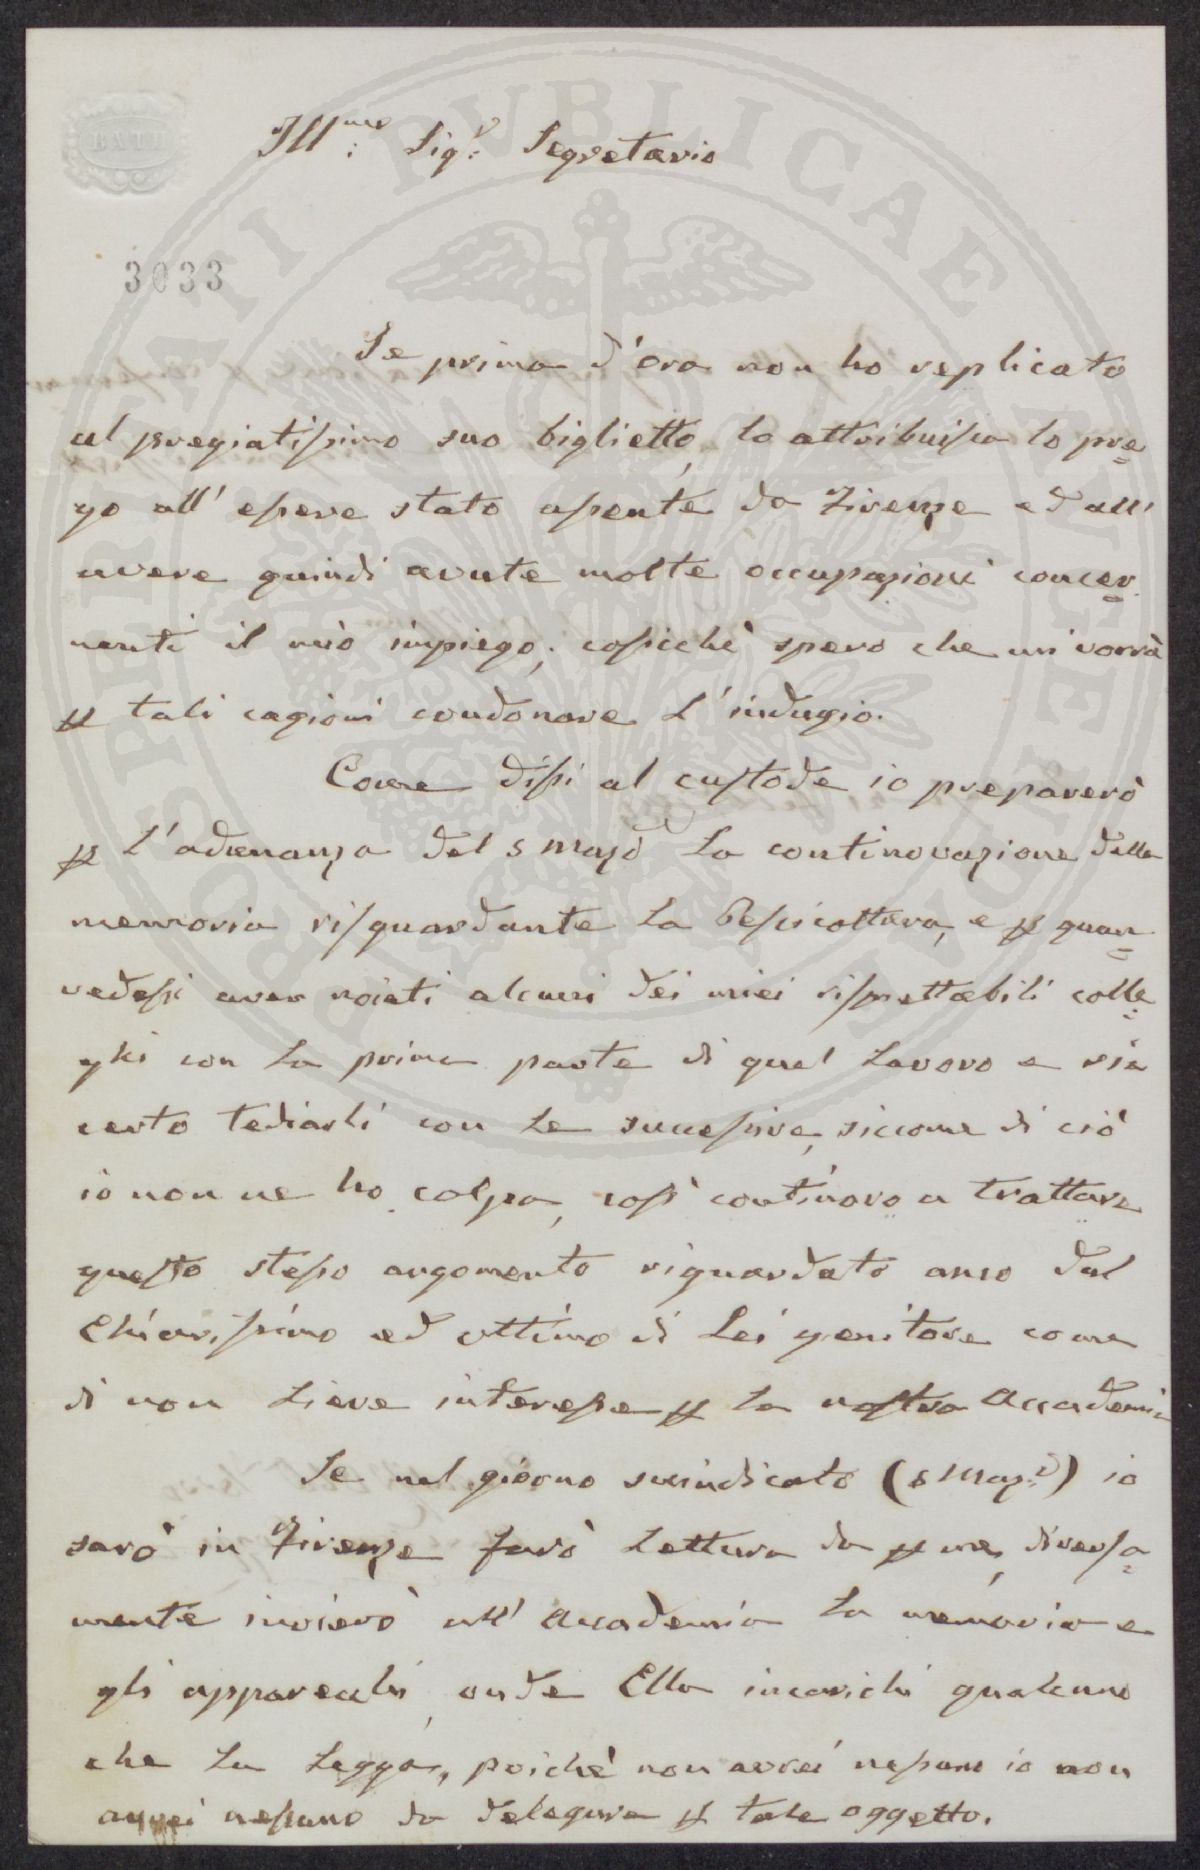 BATH
Ill.me Sig.r Segretario
3033
Se prima d'ora non ho replicato
al pregiatissimo suo biglietto, lo attribuisca lo pre=
go all'essere stato assente da Firenze ed all'
avere quindi avute molte occupazioni concer=
nenti il mio impiego; cosicchè spero che mi vorrà
p tali cagioni condonare l'indugio.
Come dissi al custode io preparerò
p l'adunanza del 5 Maggio la continovazione della
memoria risguardante la Pescicoltura, e p quan=
vedessi aver noiati alcuni dei miei rispettabili colle=
ghi con la prima parte di quel lavoro e sia
certo tediarli con le successive, siccome di ciò
io non ne ho colpa, così continovo a trattare
questo stesso argomento riguardato anco dal
Chiarissimo ed ottimo di Lei genitore come
di non lieve interesse p la nostra Accademia
Se nel giorno suindicato (5 Magg.o) io
sarò in Firenze farò lettura da p me, diversa=
mente invierò all'Accademia la memoria e
gli apparecchi, onde Ella incarichi qualcuno
che la legga, poichè non avrei nessuno io non
avrei nessuno da delegare p tale oggetto.
PROSPERITATI PUBLICAE AUGENDAE